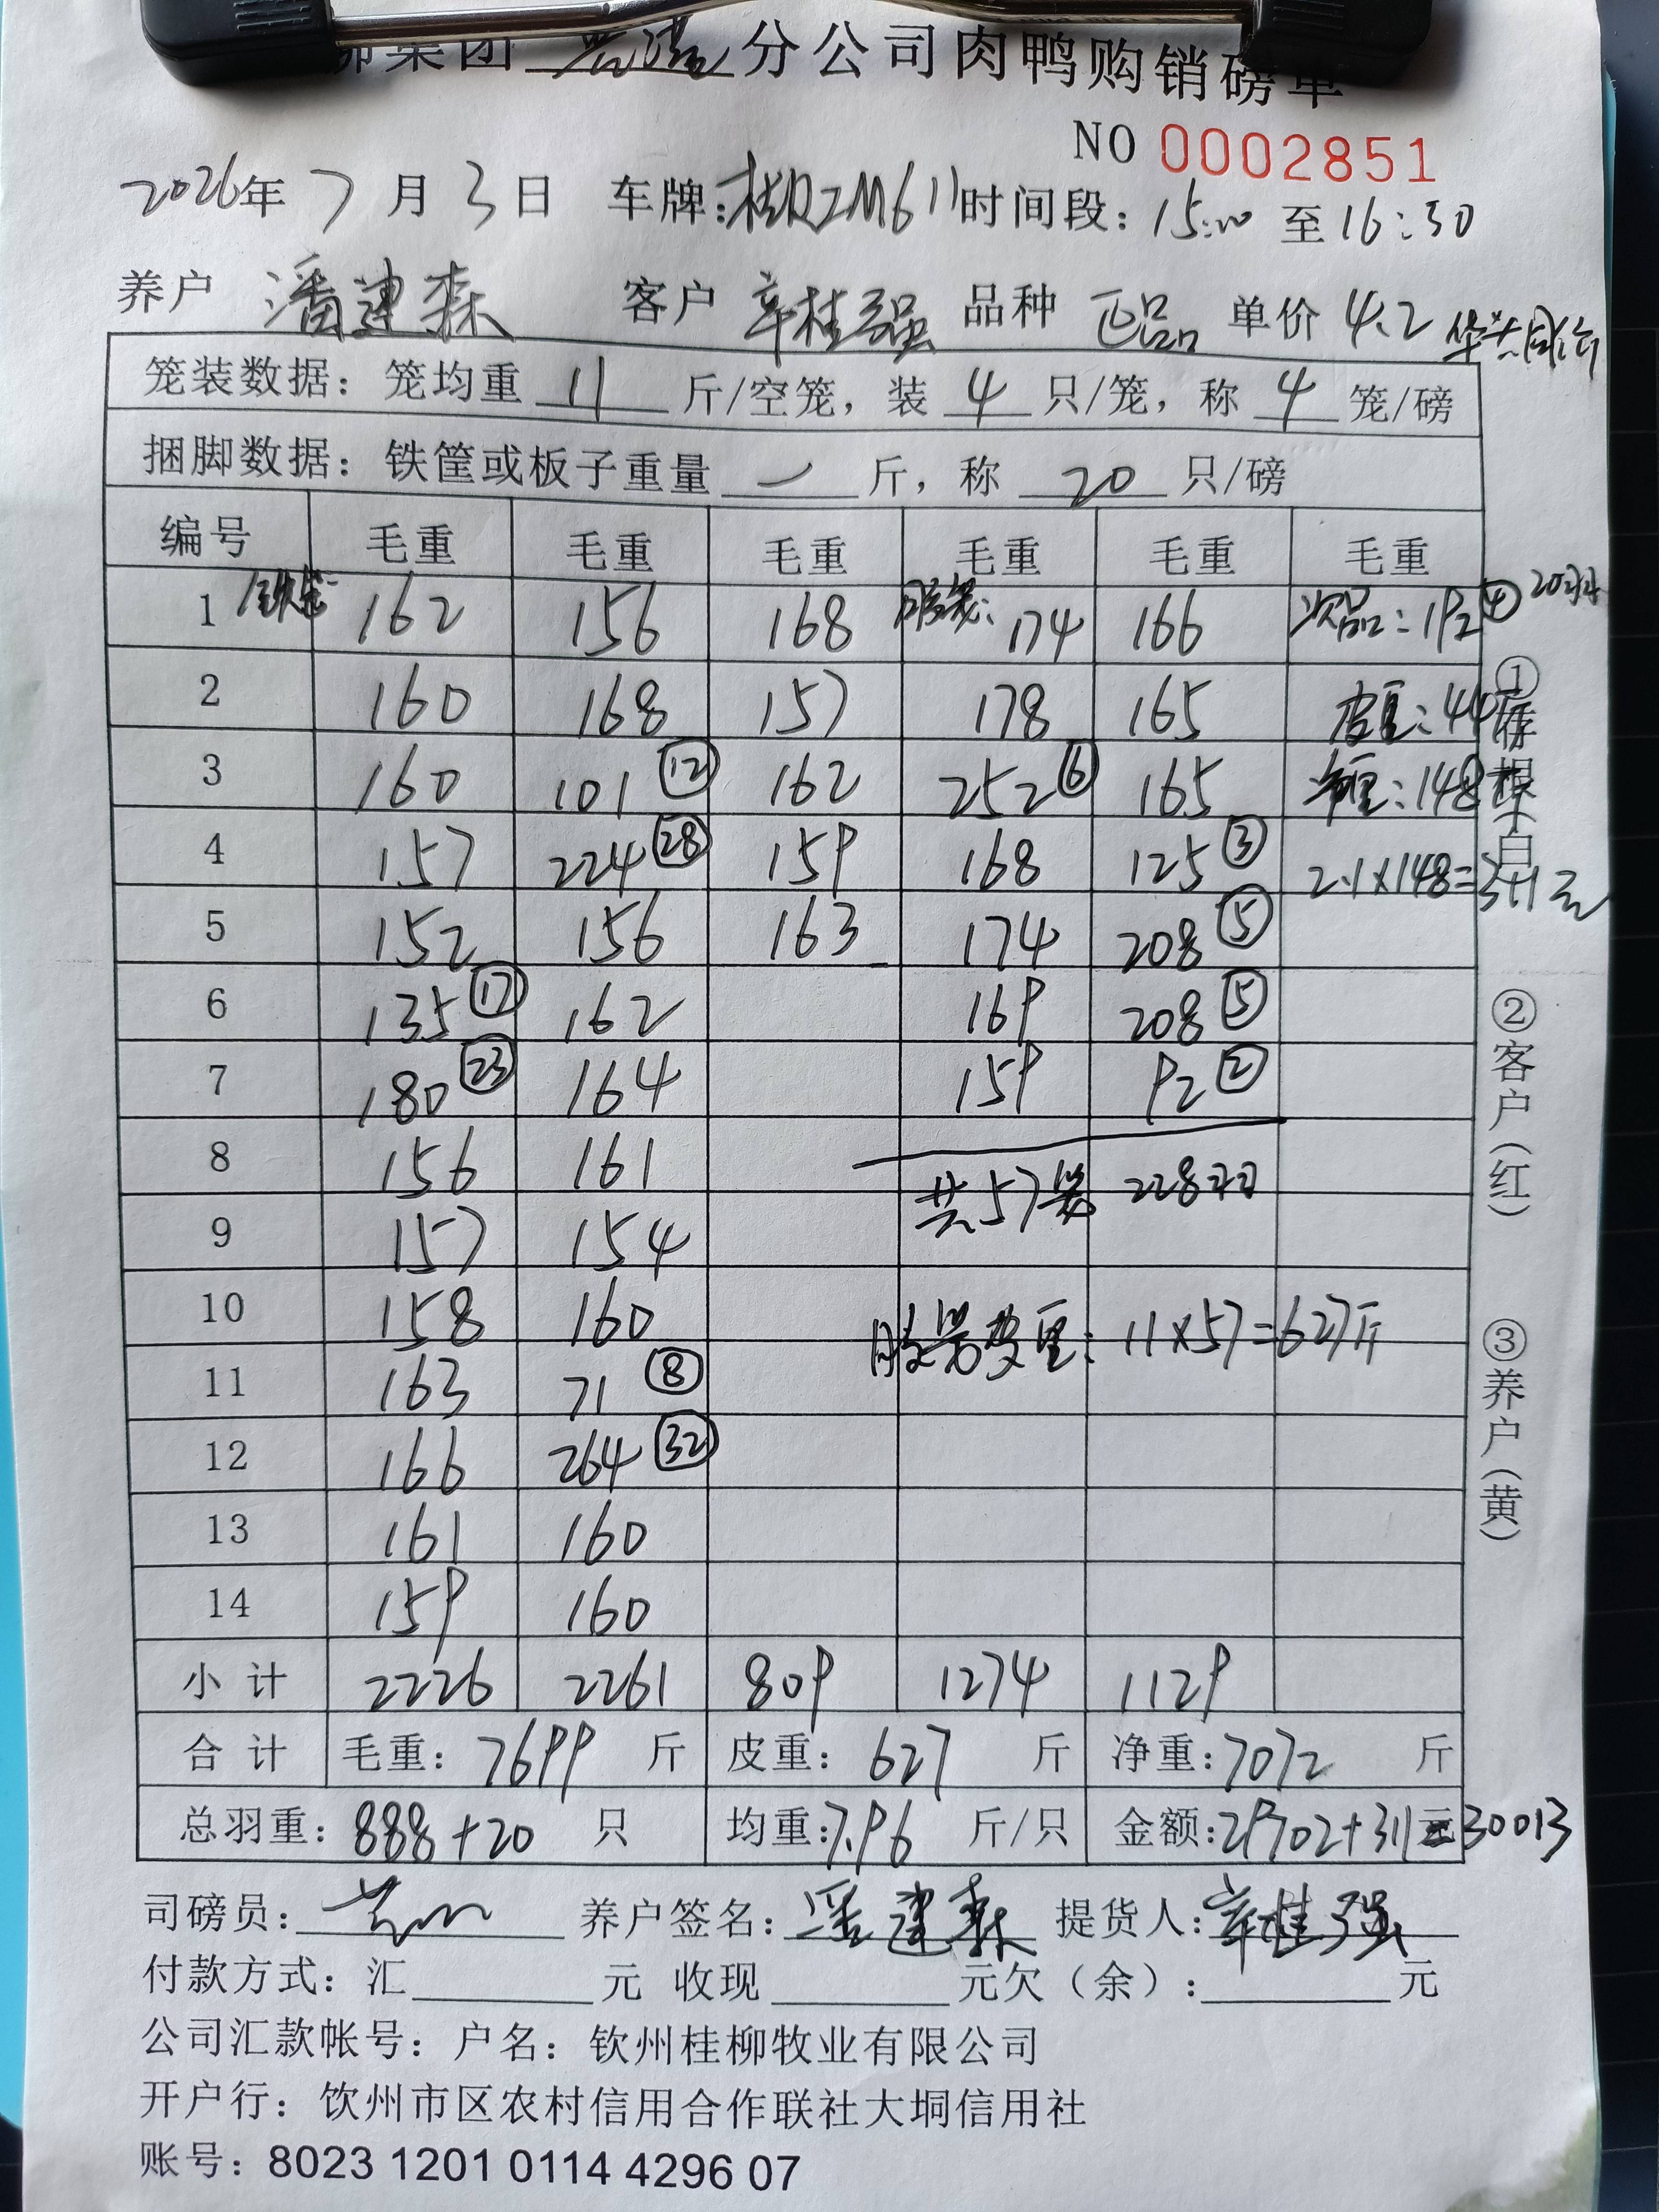 柳集团 分公司肉鸭购销磅单
NO 0002851
2026年 7月 3日 车牌:桂RZM611 时间段:15:00 至16:30
养户 潘建森 客户 辛桂强 品种 正品 单价 4.2
笼装数据:笼均重 11 斤/空笼,装 4 只/笼,称 4 笼/磅
捆脚数据:铁筐或板子重量 一 斤,称 20 只/磅
编号 毛重 毛重 毛重 毛重 毛重 毛重
1 162 156 168 胶笼: 174 166 次品:192④ 20羽
2 160 168 157 178 165 皮重:44
3 160 101⑫ 162 252⑥ 165 净重:148
4 157 224㉘ 159 168 125③ 2.1×148=311元
5 152 156 163 174 208⑤
6 135⑰ 162 169 208⑤
7 180㉓ 164 159 92②
8 156 161 共57笼 228羽
9 157 154
10 158 160 胶笼皮重:11×57=627斤
11 163 71⑧
12 166 264㉜
13 161 160
14 159 160
小计 2226 2261 809 1274 1129
合计 毛重:7699 斤 皮重:627 斤 净重:7072 斤
总羽重:888+20 只 均重:7.96 斤/只 金额:29702+311=30013
司磅员: 养户签名:潘建森 提货人:辛桂强
付款方式:汇 元 收现 元欠(余): 元
公司汇款帐号:户名:钦州桂柳牧业有限公司
开户行:钦州市区农村信用合作联社大垌信用社
账号:8023 1201 0114 4296 07
①存根(白)
②客户(红)
③养户(黄)